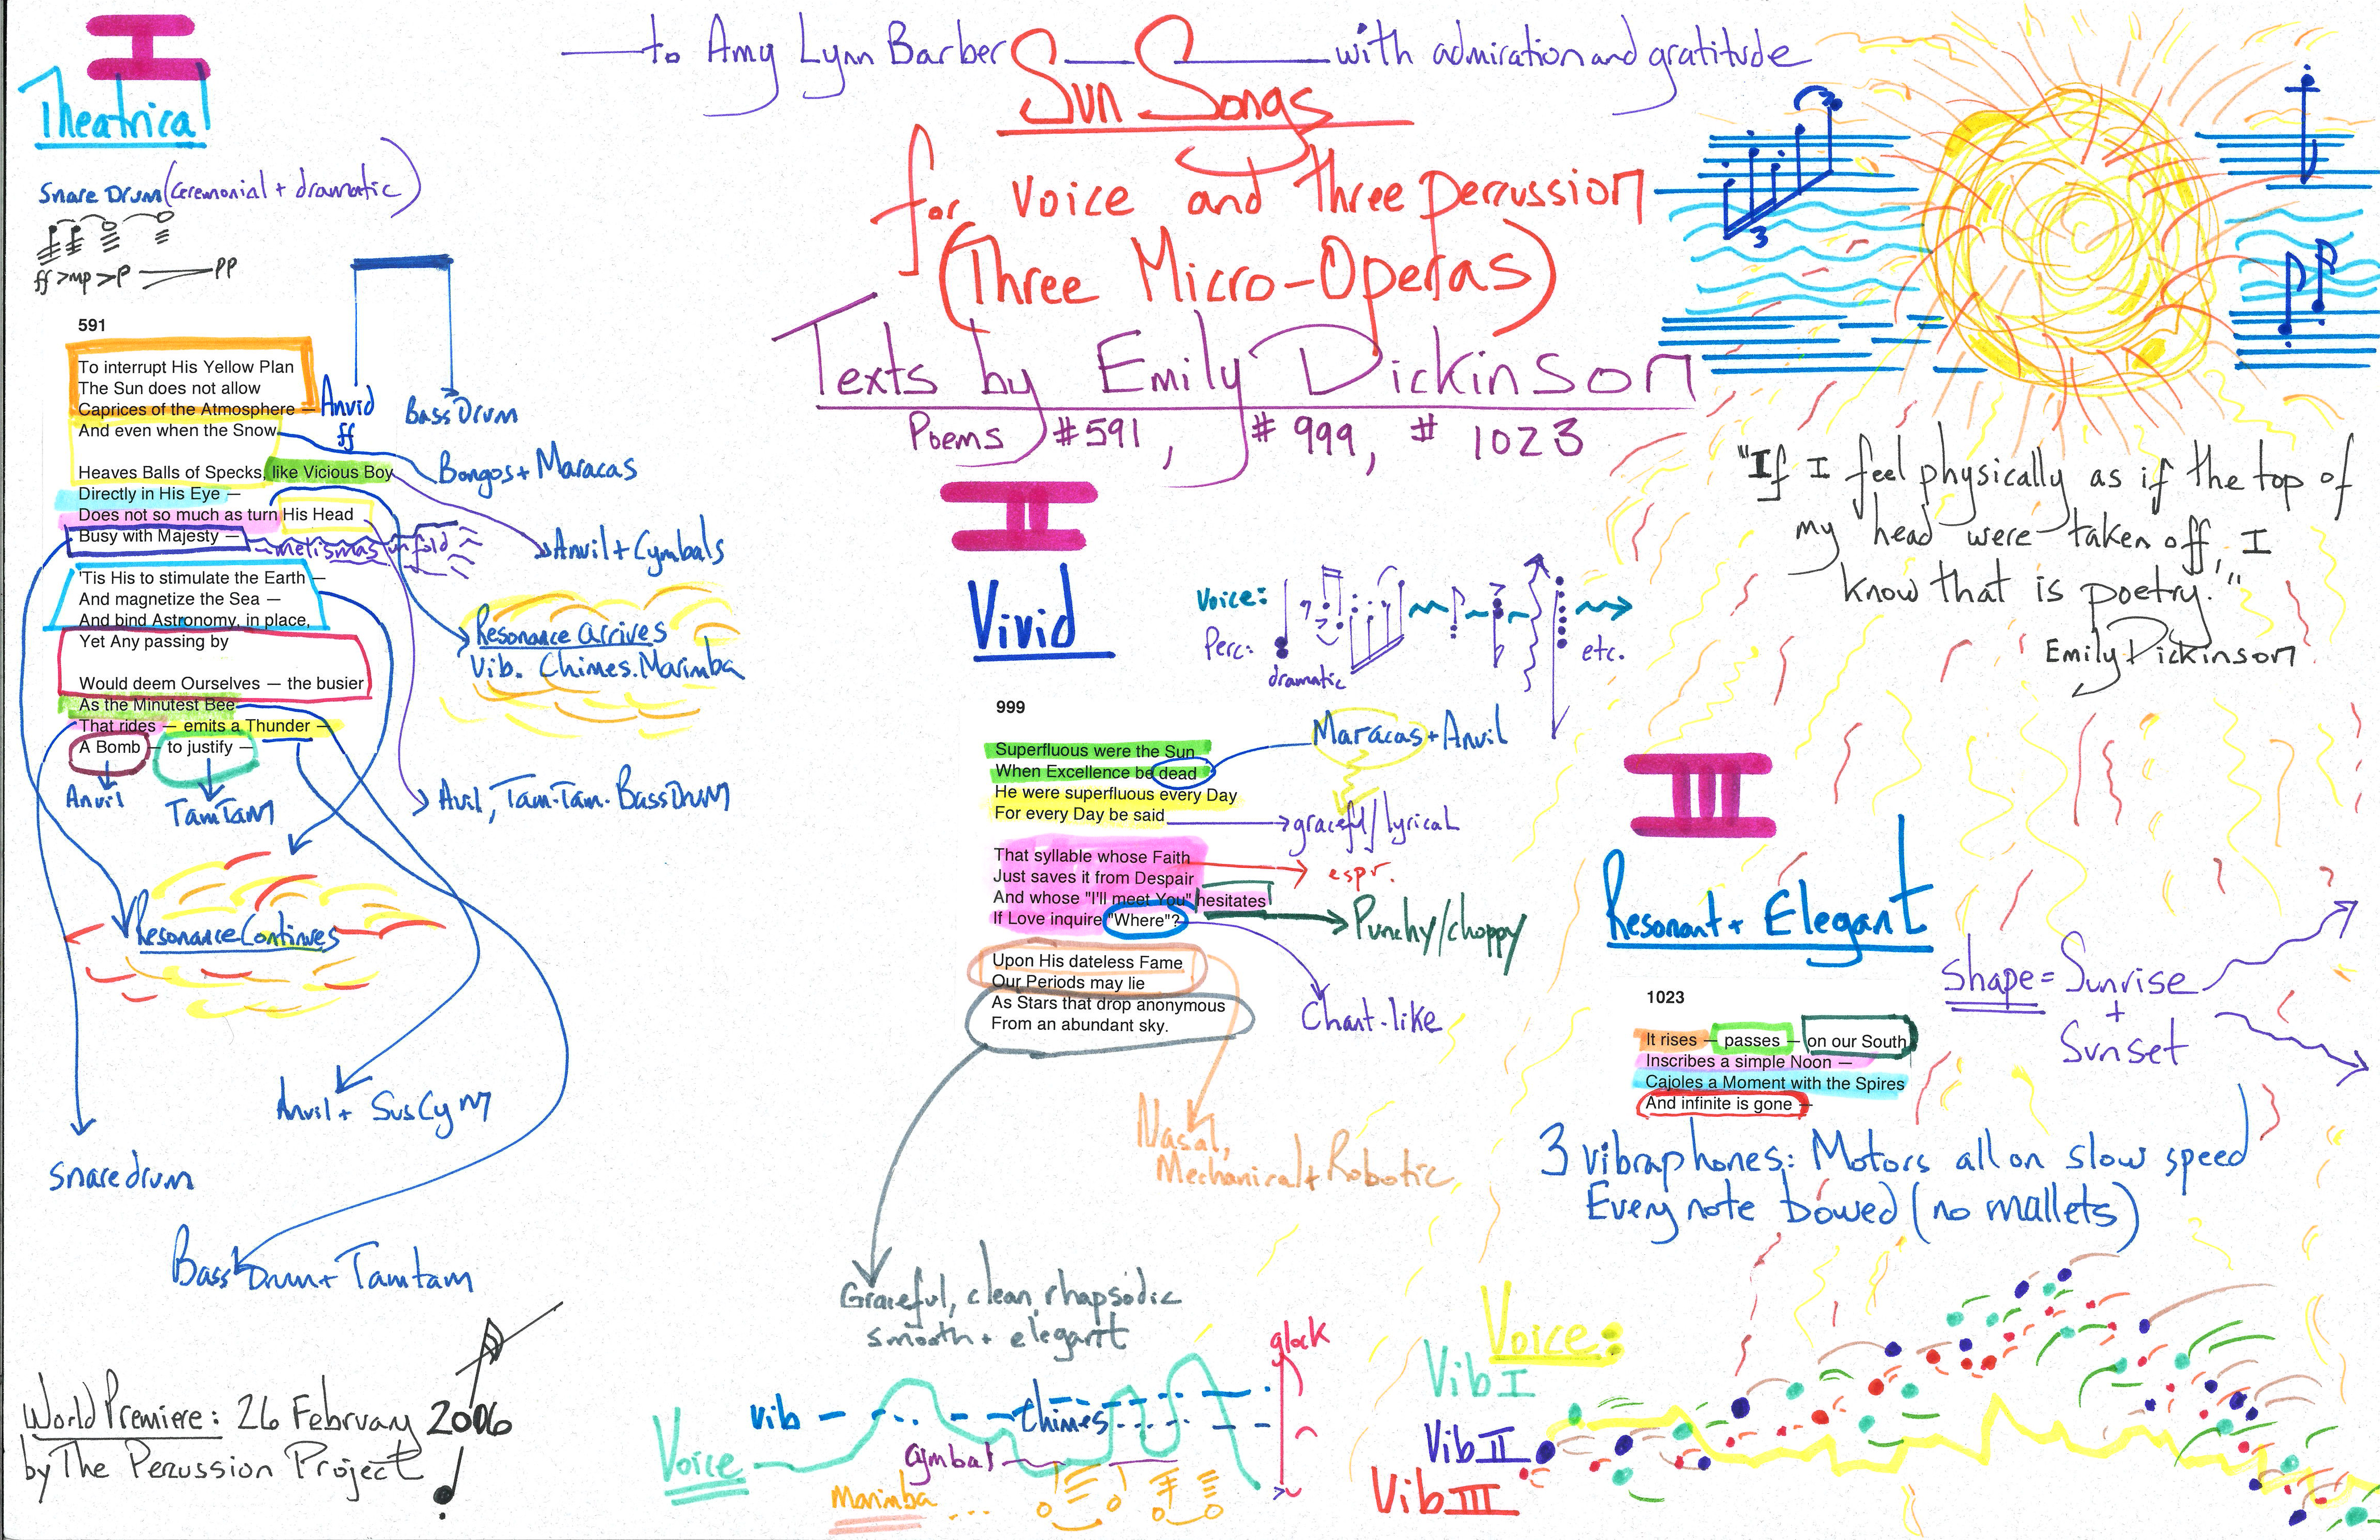 —to Amy Lynn Barber —— with admiration and gratitude
Sun Songs
for voice and three percussion
(Three Micro-Operas)
Texts by Emily Dickinson
Poems #591, #999, #1023
"If I feel physically as if the top of
my head were taken off, I
know that is poetry."
Emily Dickinson
I
Theatrical
Snare Drum (ceremonial + dramatic)
ff > mp > p pp
591
To interrupt His Yellow Plan
The Sun does not allow
Caprices of the Atmosphere —
And even when the Snow
Heaves Balls of Specks, like Vicious Boy
Directly in His Eye —
Does not so much as turn His Head
Busy with Majesty —
'Tis His to stimulate the Earth —
And magnetize the Sea —
And bind Astronomy, in place,
Yet Any passing by
Would deem Ourselves — the busier
As the Minutest Bee
That rides — emits a Thunder —
A Bomb — to justify —
Anvid
ff
Bass Drum
Bongos + Maracas
Anvil + Cymbals
metismas unfold
Resonance arrives
Vib. Chimes. Marimba
Avil, Tam-Tam. Bass Drum
Anvil
TamTam
Resonance Continues
Anvil + Sus Cym
snare drum
Bass Drum + Tamtam
World Premiere: 26 February 2006
by The Percussion Project
II
Vivid
Voice:
Perc:
dramatic
etc.
999
Superfluous were the Sun
When Excellence be dead
He were superfluous every Day
For every Day be said
That syllable whose Faith
Just saves it from Despair
And whose "I'll meet You" hesitates
If Love inquire "Where"?
Upon His dateless Fame
Our Periods may lie
As Stars that drop anonymous
From an abundant sky.
Maracas + Anvil
graceful/lyrical
espr.
Punchy/choppy
Chant-like
Nasal,
Mechanical + Robotic
Graceful, clean, rhapsodic
smooth + elegant
glock
vib
chimes
Voice
cymbal
Marimba ...
III
Resonant + Elegant
shape = Sunrise
+
Sunset
1023
It rises — passes — on our South
Inscribes a simple Noon —
Cajoles a Moment with the Spires
And infinite is gone —
3 vibraphones: Motors all on slow speed
Every note bowed (no mallets)
Voice:
Vib I
Vib II
Vib III
3